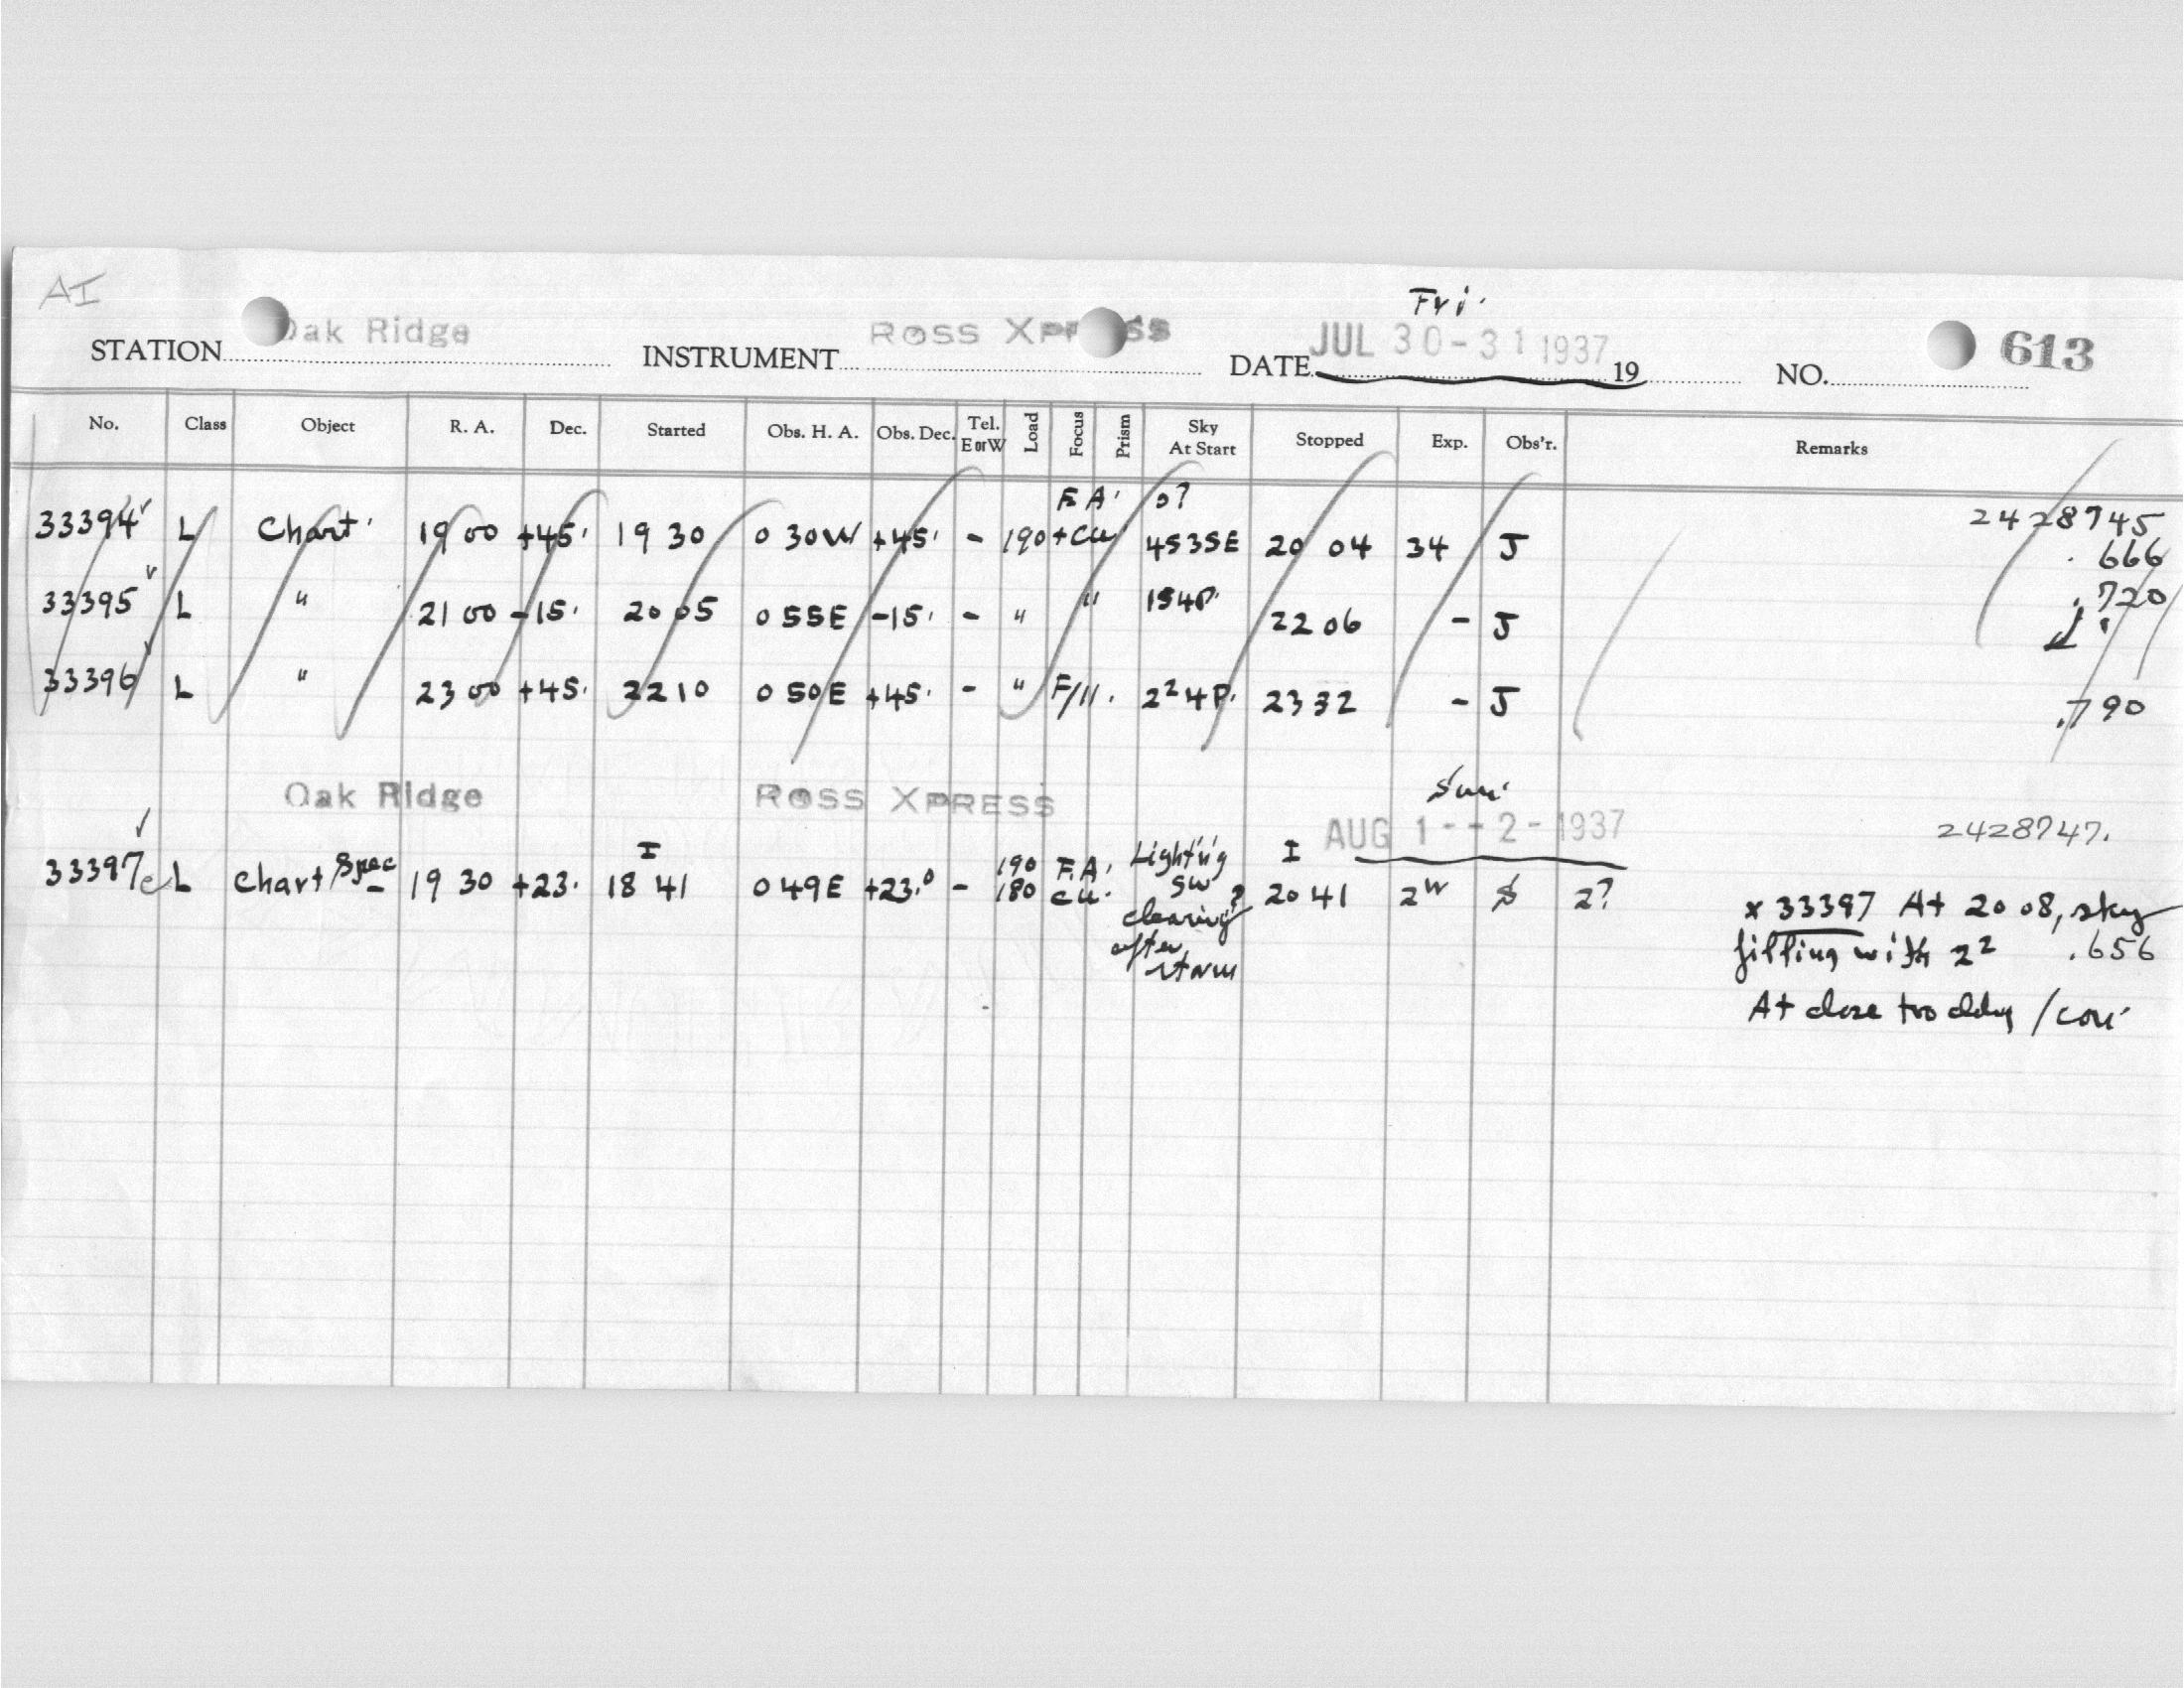 AI
Fri.
STATION Oak Ridge INSTRUMENT ROSS XPRESS DATE JUL 30-31 1937 19 NO. 613
No. Class Object R. A. Dec. Started Obs. H. A. Obs. Dec. Tel. E or W Load Focus Prism Sky At Start Stopped Exp. Obs'r. Remarks
F.A. 0? 2428745
33394 L Chart. 19 00 +45. 19 30 0 30W +45. - 190 +Cu 453SE 20 04 34 J .666
33395 L " 21 00 -15. 20 05 0 55E -15. - " " 154P. 22 06 - J .720
33396 L " 23 00 +45. 22 10 0 50E +45. - " F/11. 2²4P. 23 32 - J .790
Sun.
Oak Ridge ROSS XPRESS AUG 1--2-1937 2428747.
33397 L Chart/Spec 19 30 +23. I 18 41 0 49E +23.⁰ - 190 180 F.A. Cu. Light'n'g SW clearing? after storm I 20 41 2 S 2?
x 33397 At 20 08, sky
filling with 2² .656
At close too cldy /con.